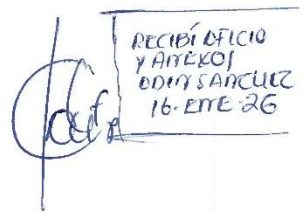 RECIBÍ OFICIO
Y ANEXOS
ODIN SANCHEZ
16-ENE-26